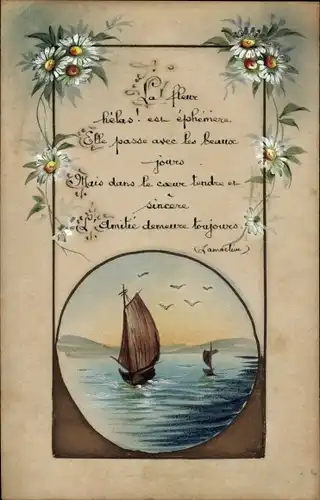 La fleur
hélas! est éphémère
Elle passe avec les beaux
jours
Mais dans le cœur tendre et
sincère
L'Amitié demeure toujours.